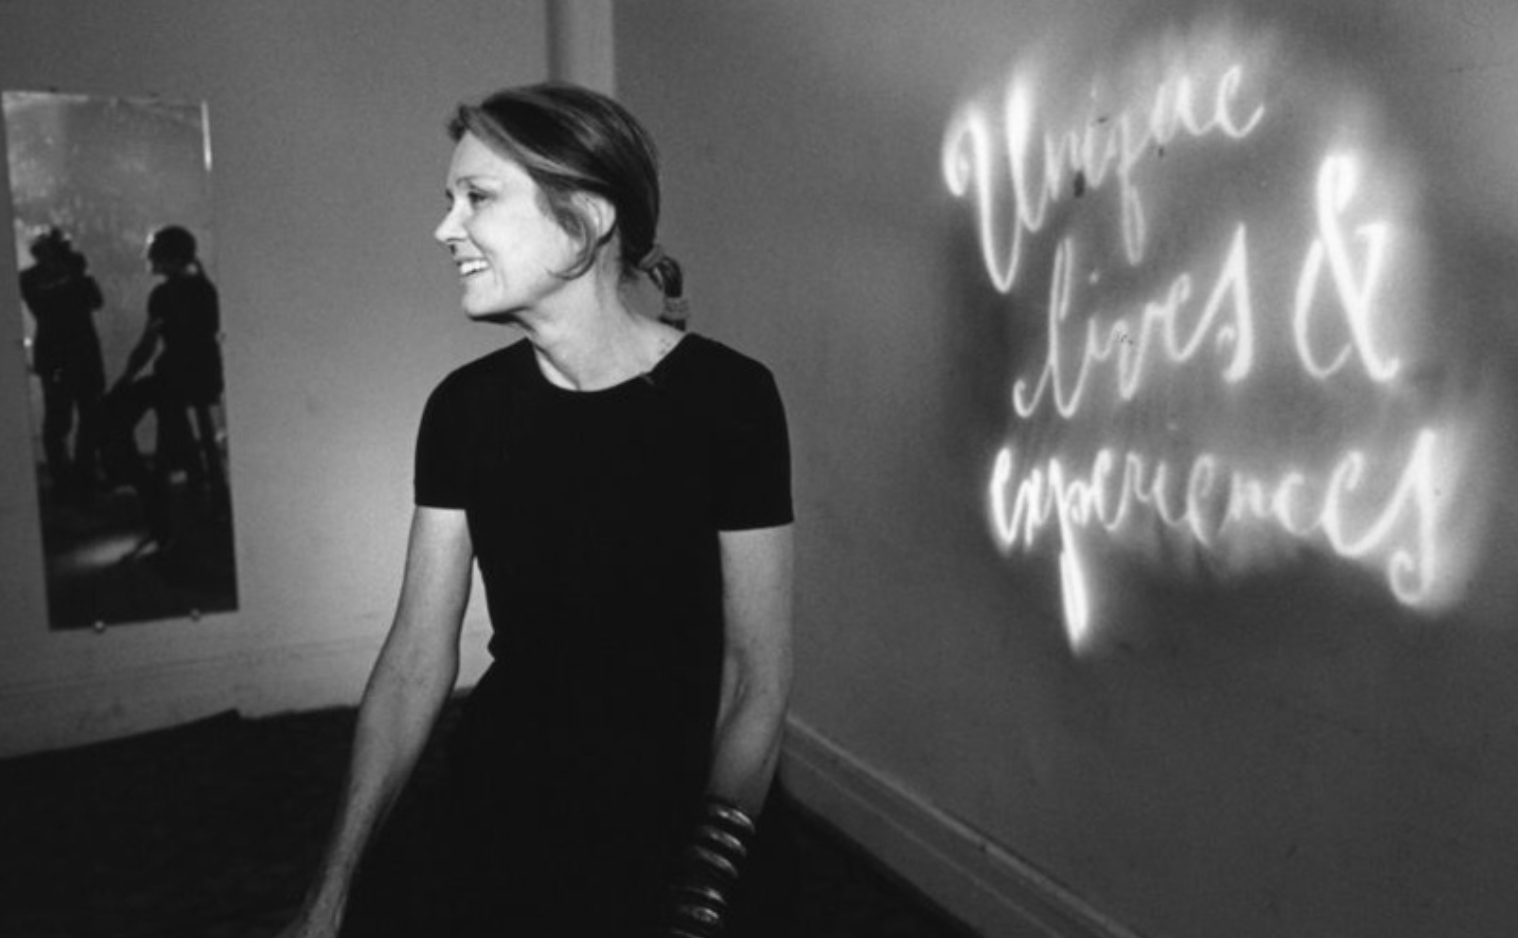 Unique
lives &
experiences